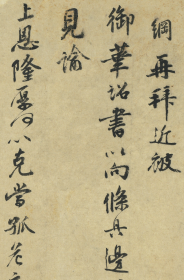 綱再拜近被
御筆詔書以向條具邊
見諭
上恩隆厚何以克當孤危